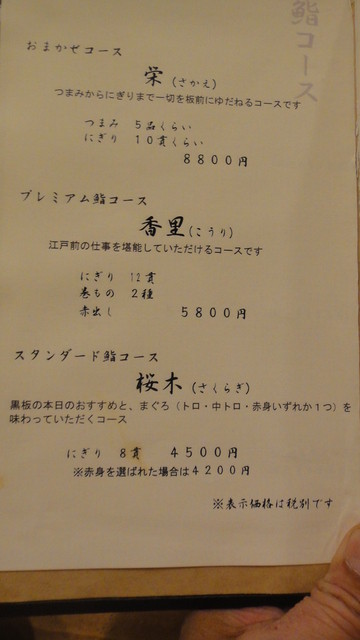 鮨コース
おまかせコース
栄(さかえ)
つまみからにぎりまで一切を板前にゆだねるコースです
つまみ ５品くらい
にぎり １０貫くらい
８８００円
プレミアム鮨コース
香里(こうり)
江戸前の仕事を堪能していただけるコースです
にぎり 12貫
巻もの ２種
赤出し ５８００円
スタンダード鮨コース
桜木(さくらぎ)
黒板の本日のおすすめと、まぐろ（トロ・中トロ・赤身いずれか１つ）を
味わっていただくコース
にぎり ８貫 ４５００円
※赤身を選ばれた場合は４２００円
※表示価格は税別です